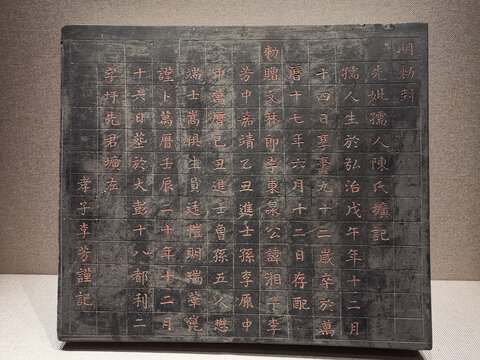 明勑封
先妣孺人陳氏壙記
孺人生於弘治戊午年十二月
十四日享壽九十二歲卒於萬
曆十七年六月十二日存配
勑贈文林郎李東泉公諱湘子李
芳中嘉靖乙丑進士孫李原中
中萬曆己丑進士曾孫五人懋
瑞士萬俱生員廷 明瑞
謹卜萬曆壬辰二十年十二月
十六日葬於大彭十八都利二
字圩先君壙左
孝子李芳謹記